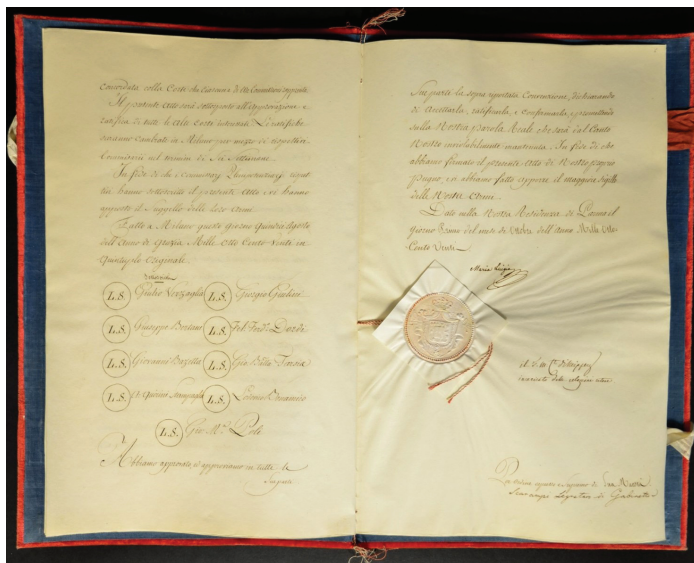 concordata colla Corte che ciascuno di essi Committenti rappresenta.
Il presente Atto sarà sottoposto all'approvazione e
ratifica di tutte le alte Corti interessate. Le ratifiche
saranno cambiate in Milano per mezzo di rispettivi
Commissarj nel termine di Sei Settimane.
In fede di che i Plenipotenziarj rispet
tivi hanno sottoscritto il presente Atto e vi hanno
apposto il Suggello delle loro Armi.
Fatto a Milano questo giorno quindici Agosto
dell'Anno di Grazia Mille Otto Cento Venti, in
quintuplo Originale.
L.S. Giulio L.S. Giuseppe Giuliani
L.S. Giuseppe Bertani L.S. Ferd.
L.S. Giovanni L.S. Gio. Batta
L.S. L.S.
L.S. Gio. M.ª Poli
Abbiamo approvato, ed approviamo in tutte le
Sue parti
Sue parti la sopra riportata Convenzione, dichiarando
di Accettarla, ratificarla, e confermarla, e promettendo
sulla Nostra parola Reale che sarà dal Canto
Nostro inviolabilmente mantenuta. In fede di che
abbiamo firmato il presente Atto di Nostro proprio
Pugno, ed abbiamo fatto apporre il maggior Sigillo
delle Nostre Armi.
Dato nella Nostra Residenza di Parma il
Giorno del mese di Ottobre dell'Anno Mille Otto
Cento Venti.
Maria Luigia
incaricato delle relazioni estere
Per ordine espresso e Supremo di Sua Maestà
Segretario di Gabinetto